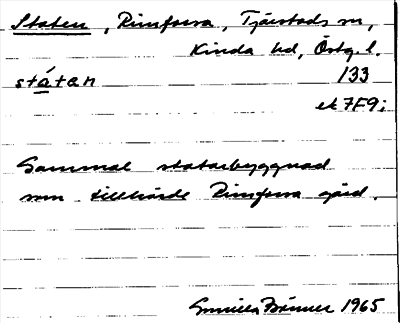 Staten, Rimforsa, Tjärstads sn,
Kinda hd, Östg. l.
státan 133
ek 7F9;
Gammal statarbyggnad
som tillhörde Rimforsa gård.
Gunilla Bränner 1965